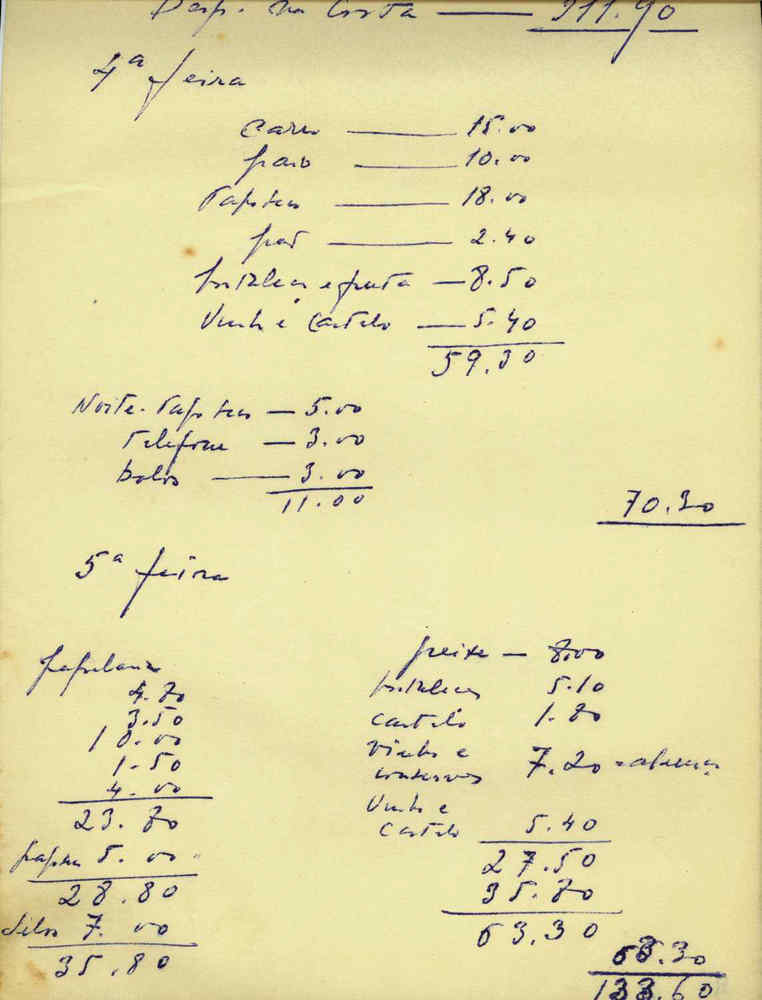 Desp. na Costa — 911.90
4ª feira
carro — 15.00
— 10.00
— 18.00
— 2.40
hortaliças e fruta — 8.50
Vinho e Castelo — 5.40
59.30
Noite — 5.00
Telefone — 3.00
bolos — 3.00
11.00
70.30
5ª feira
papelaria
4.80
3.50
10.00
1.50
4.00
23.80
5.00
28.80
selos 7.00
35.80
peixe — 8.00
hortaliças 5.10
castelo 1.80
vinho e
conservas 7.20
Vinho e
Castelo 5.40
27.50
35.80
63.30
63.30
133.60